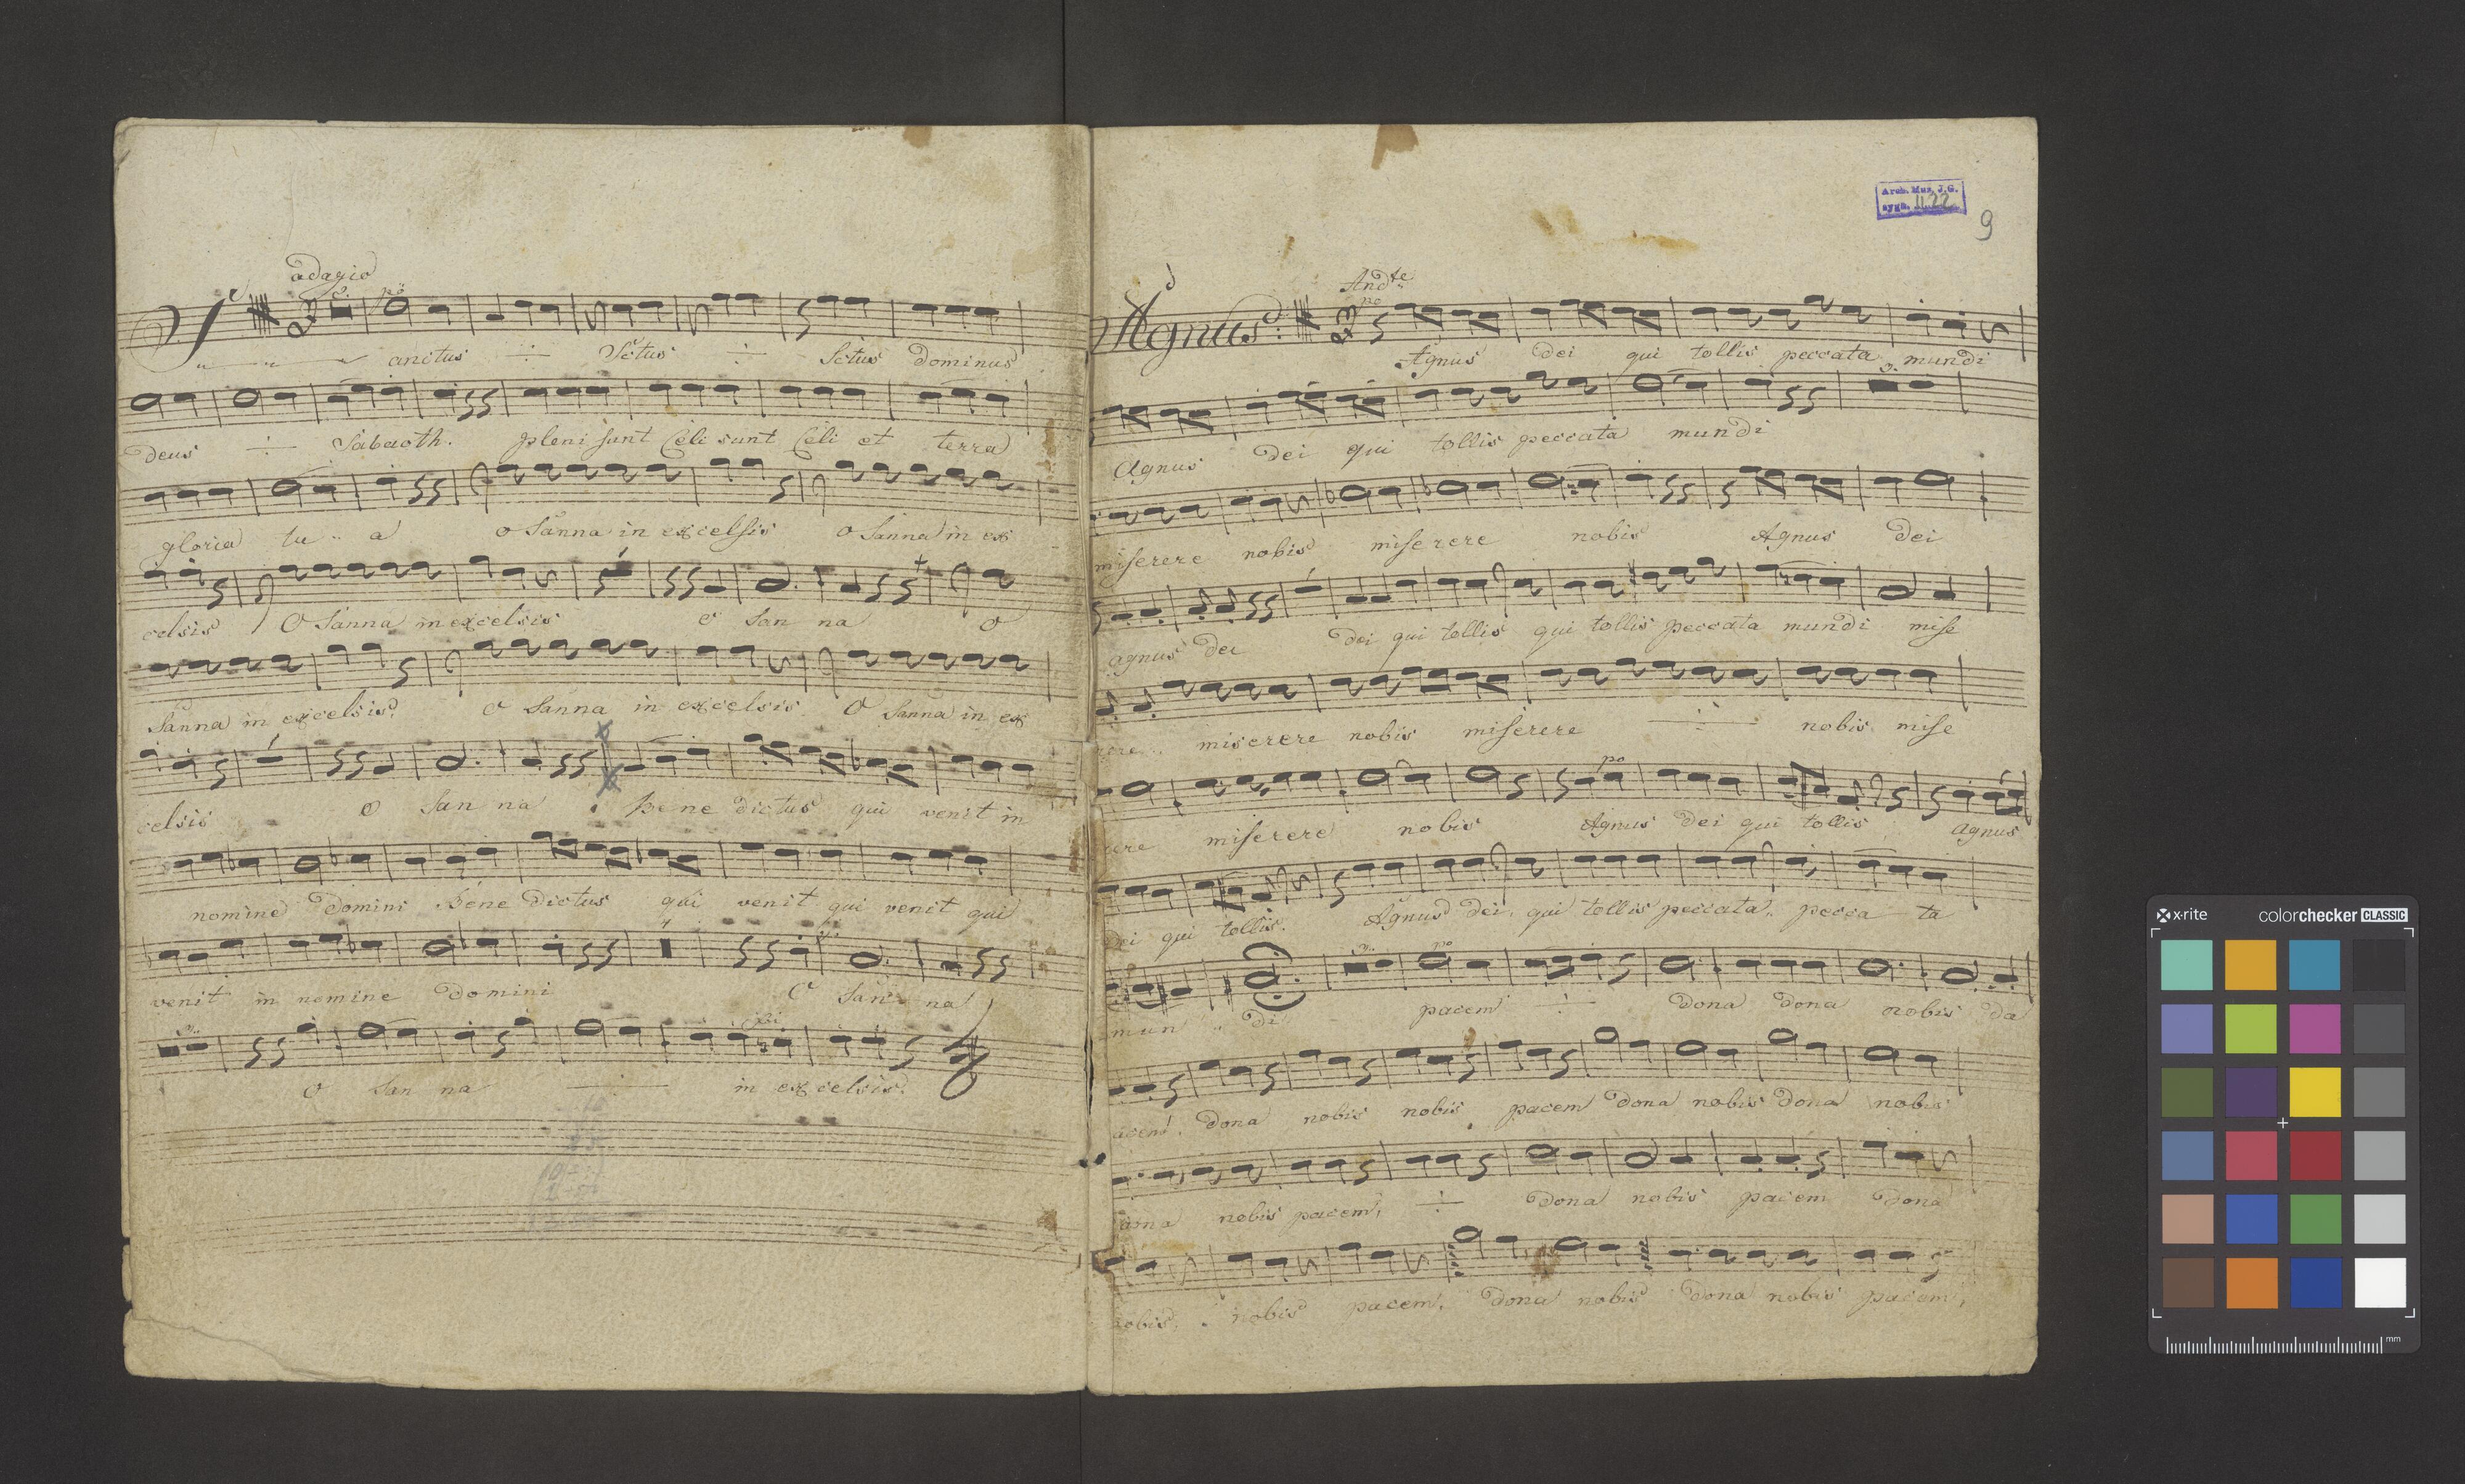 adagio
po
Sanctus ÷ Sctus ÷ Sctus Dominus
Deus ÷ Sabaoth. pleni sunt Celi sunt Celi et terra
gloria tu .. a o Sanna in excelsis o Sanna in ex
celsis O Sanna in excelsis o San na o
Sanna in excelsis. o Sanna in excelsis. O Sanna in ex
celsis o San na . Bene dictus qui venit in
nomine Domini Bene dictus qui venit qui venit qui
venit in nomine Domini O San na
o San na ÷ in excelsis.
Arch. Mus. J.G.
sygn. II.22
9
Andte
po
Agnus: Agnus Dei qui tollis peccata mundi
Agnus Dei qui tollis peccata mundi
miserere nobis miserere nobis Agnus Dei
agnus Dei Dei qui tollis qui tollis peccata mundi mise
rere .. miserere nobis miserere ÷ nobis mise
po
rere miserere nobis Agnus Dei qui tollis agnus
Dei qui tollis. Agnus Dei, qui tollis peccata .. pecca ta
po
mun .. di pacem ÷ Dona Dona nobis da
acem. Dona nobis nobis pacem Dona nobis Dona nobis
dona nobis pacem, ÷ Dona nobis pacem Dona
nobis. nobis pacem, Dona nobis Dona nobis pacem,
x-rite colorchecker CLASSIC
mm